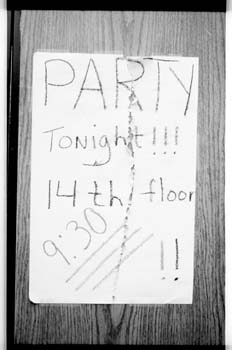 PARTY
Tonight!!!
14th floor
9:30
!!